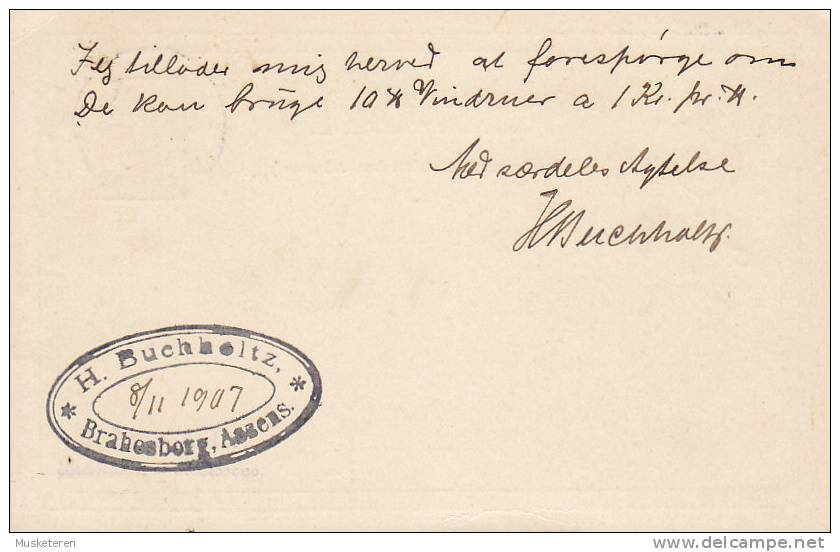 Jeg tillader mig herved at forespørge om
De kan brüge 10 ℔ Vindruer a 1 Kr. pr. ℔.
Med særdeles Agtelse
HBuchholtz.
H. Buchholtz,
8/11 1907
* Brahesborg, Assens. *
Musketeren
delcampe.net